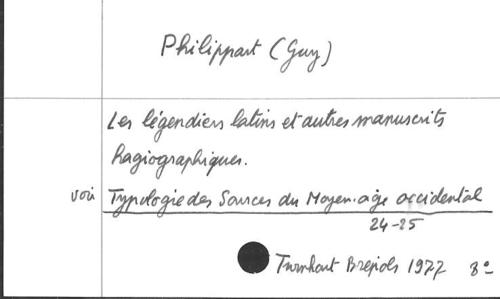 Philippart (Guy)
Les légendiers latins et autres manuscrits
hagiographiques.
voir Typologie des Sources du Moyen-âge occidental
24-25
Turnhout Brepols 1977 8°